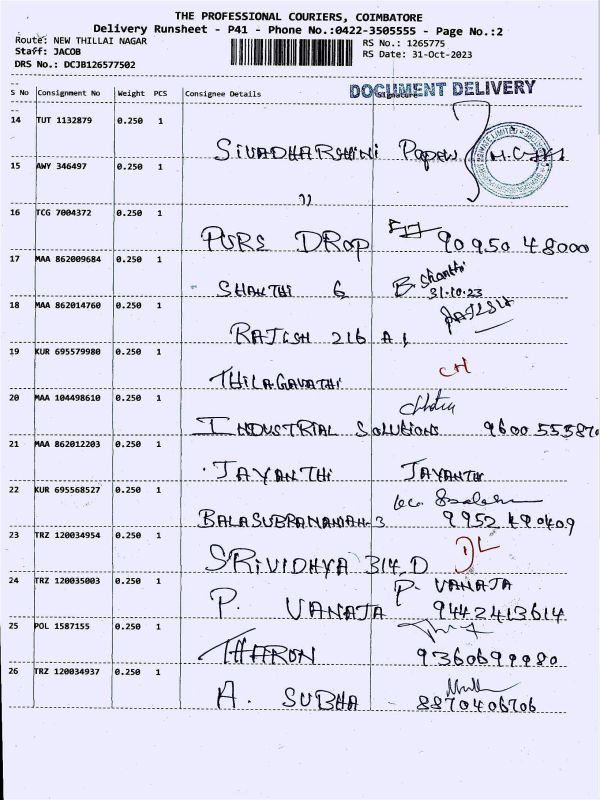 THE PROFESSIONAL COURIERS, COIMBATORE
Delivery Runsheet - P41 - Phone No.:0422-3505555 - Page No.:2
Route: NEW THILLAI NAGAR
Staff: JACOB
DRS No.: DCJB126577502
RS No.: 1265775
RS Date: 31-Oct-2023
DOCUMENT DELIVERY
S No Consignment No Weight PCS Consignee Details Signature
14 TUT 1132879 0.250 1
SIVADHARSHINI Papers
15 AWY 346497 0.250 1
16 TCG 7004372 0.250 1
PURE DROP 90950 48000
17 MAA 862009684 0.250 1
SHANTHI G B. Shanthi
31-10-23
18 MAA 862014760 0.250 1
RAJESH 216 A1
19 KUR 695579980 0.250 1
THILAGAVATHI
20 MAA 104498610 0.250 1
INDUSTRIAL SOLUTIONS
21 MAA 862012203 0.250 1
JAYANTHI JAYANTHI
22 KUR 695568527 0.250 1
23 TRZ 120034954 0.250 1
SRIVIDHYA 314 D
24 TRZ 120035003 0.250 1
P. VANAJA P. VANAJA
9442413614
25 POL 1587155 0.250 1
THARUN 9360699980
26 TRZ 120034937 0.250 1
A. SUBHA 8870406706